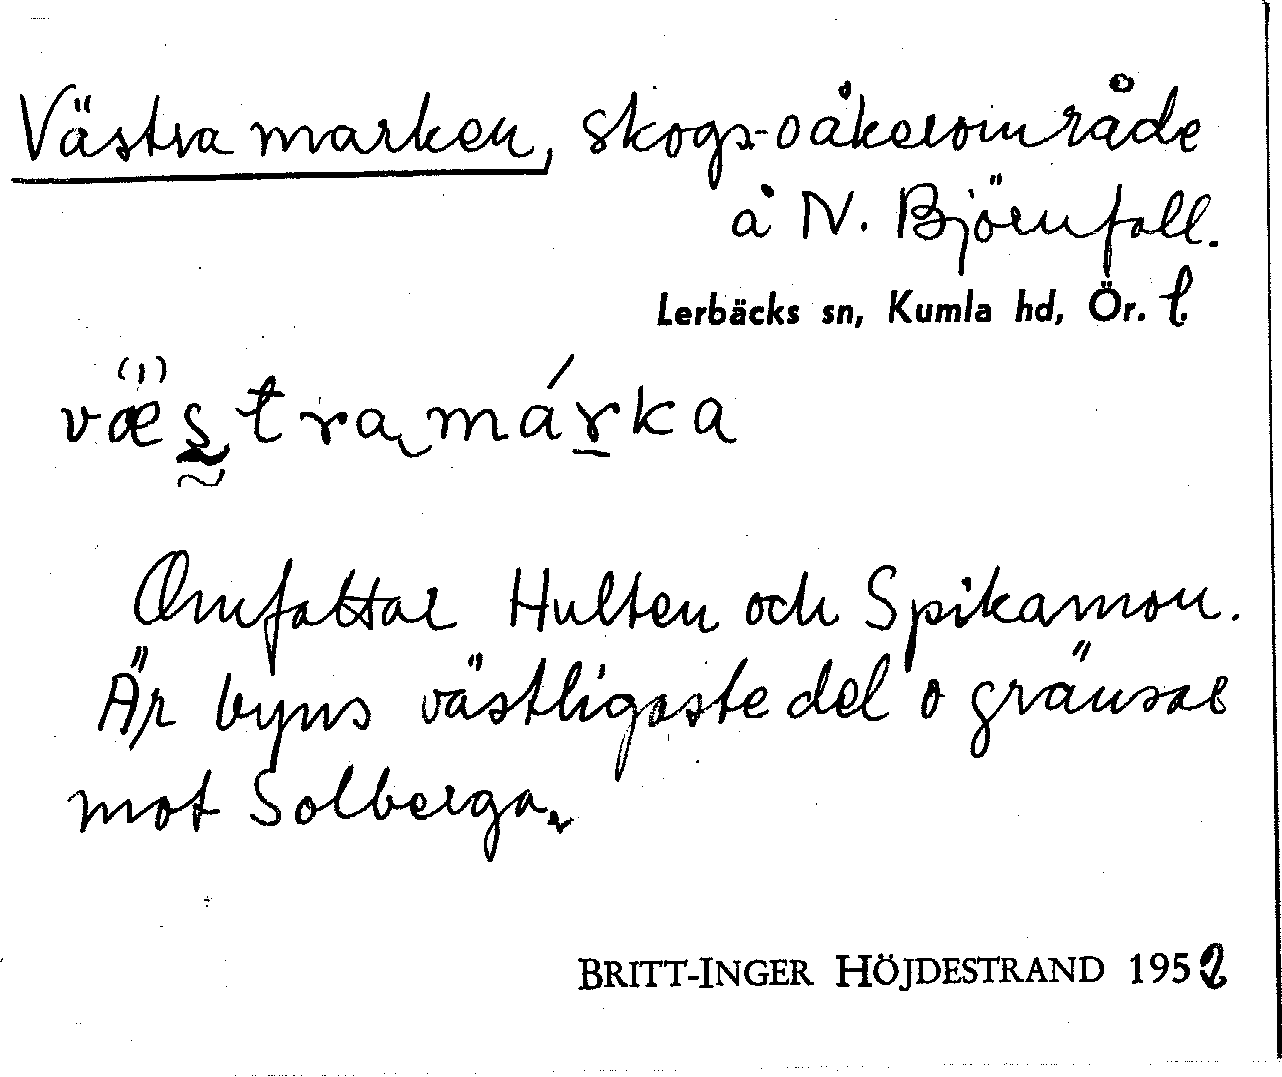 Västra marken, skogs- o åkerområde
å N. Björnfall.
Lerbäcks sn, Kumla hd, Ör. l.
væstra márka
Omfattar Hulten och Spikamon.
Är byns västligaste del o gränsar
mot Solberga.
BRITT-INGER HÖJDESTRAND 1952